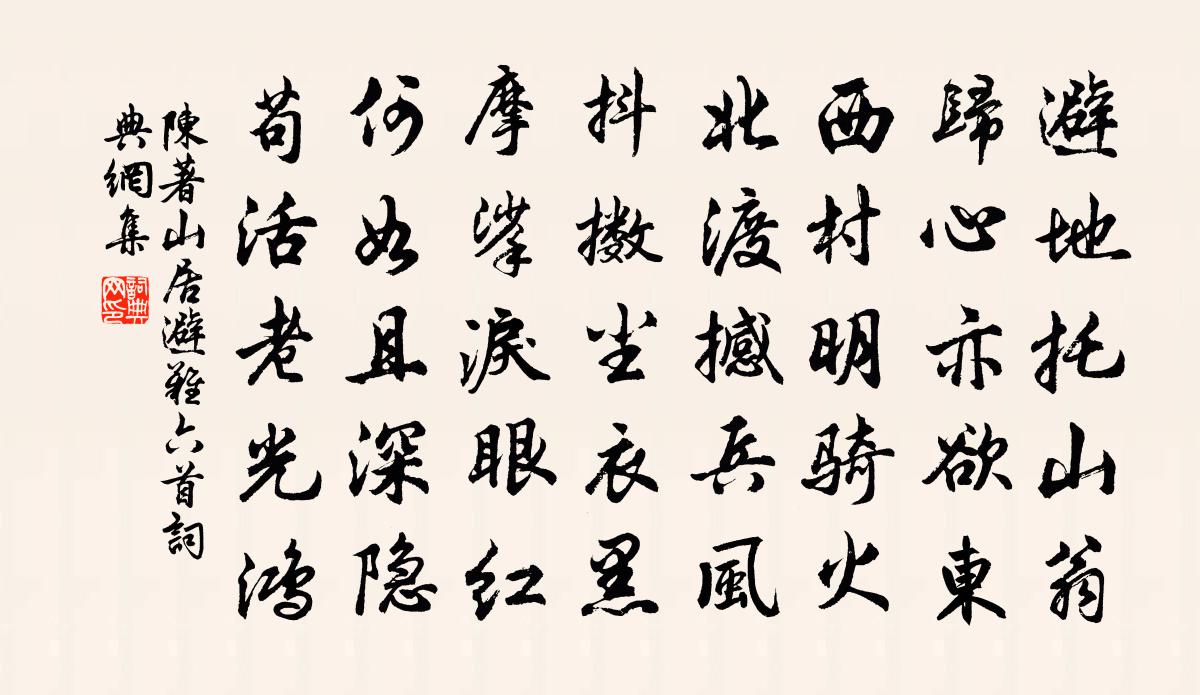 避地托山翁
歸心亦欲東
西村明騎火
北渡撼兵風
抖擻塵衣黑
摩挲淚眼紅
何如且深隐
苟活老光鴻
陳著山居避難六首詞
典網集
詞典
网印